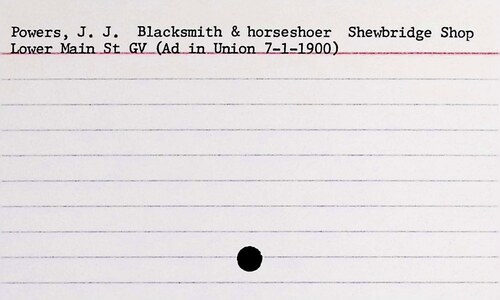 Powers, J. J.  Blacksmith & horseshoer  Shewbridge Shop
Lower Main St GV (Ad in Union 7-1-1900)